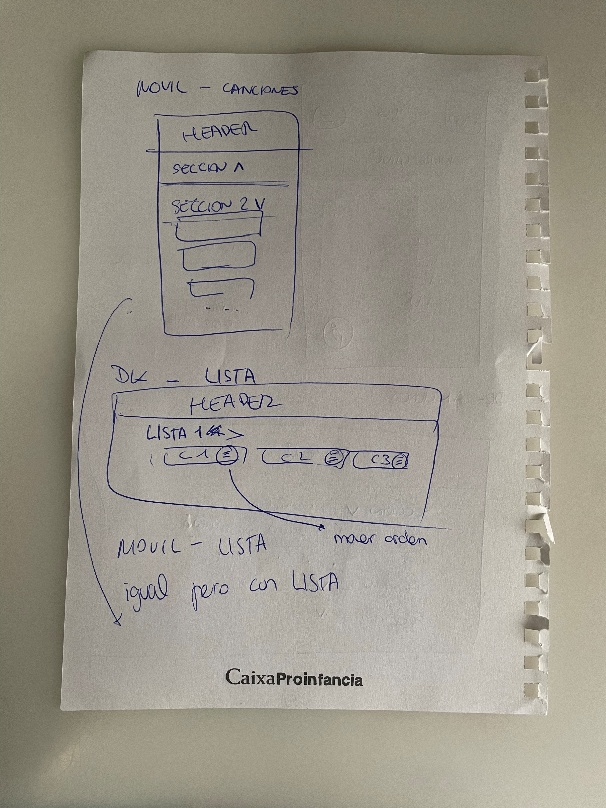 MOVIL - CANCIONES
HEADER
SECCION Λ
SECCION 2 V
...
DK - LISTA
HEADER
LISTA 1 >
C1 C2 C3
mover orden
MOVIL - LISTA
igual pero con LISTA
CaixaProinfancia